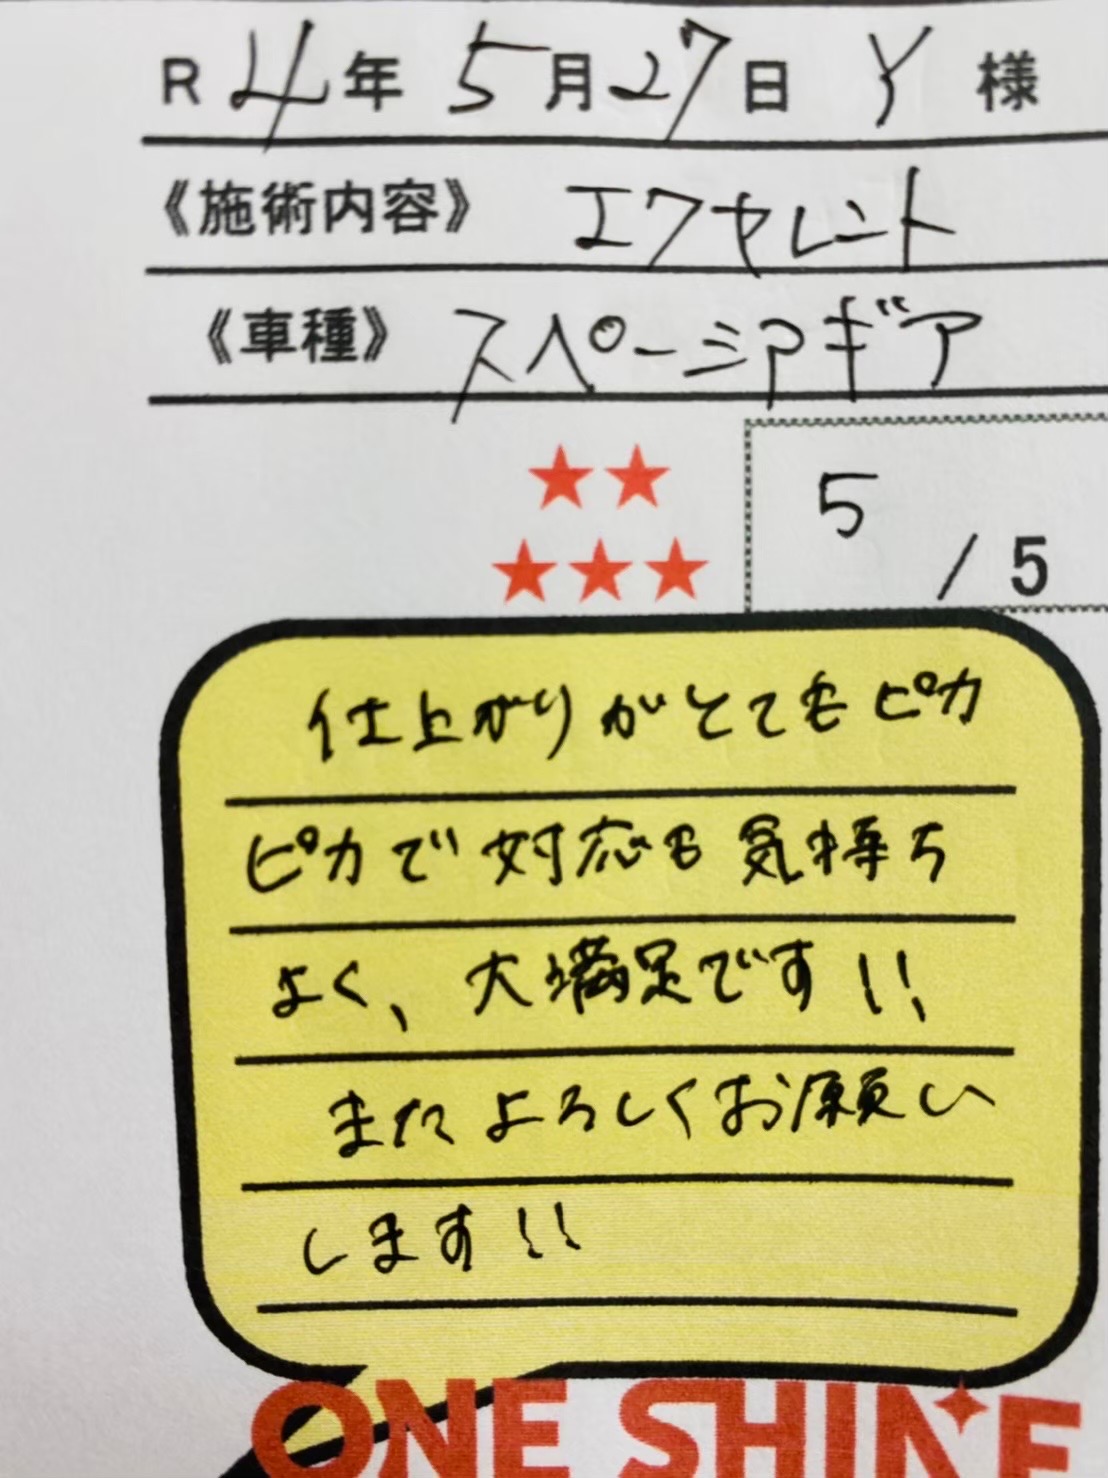 R4年5月27日 Y 様
《施術内容》 エクセレント
《車種》 スペーシアギア
★★
★★★
5/5
仕上がりがとてもピカ
ピカで対応も気持ち
よく、大満足です!!
またよろしくお願い
します!!
ONE SHINE